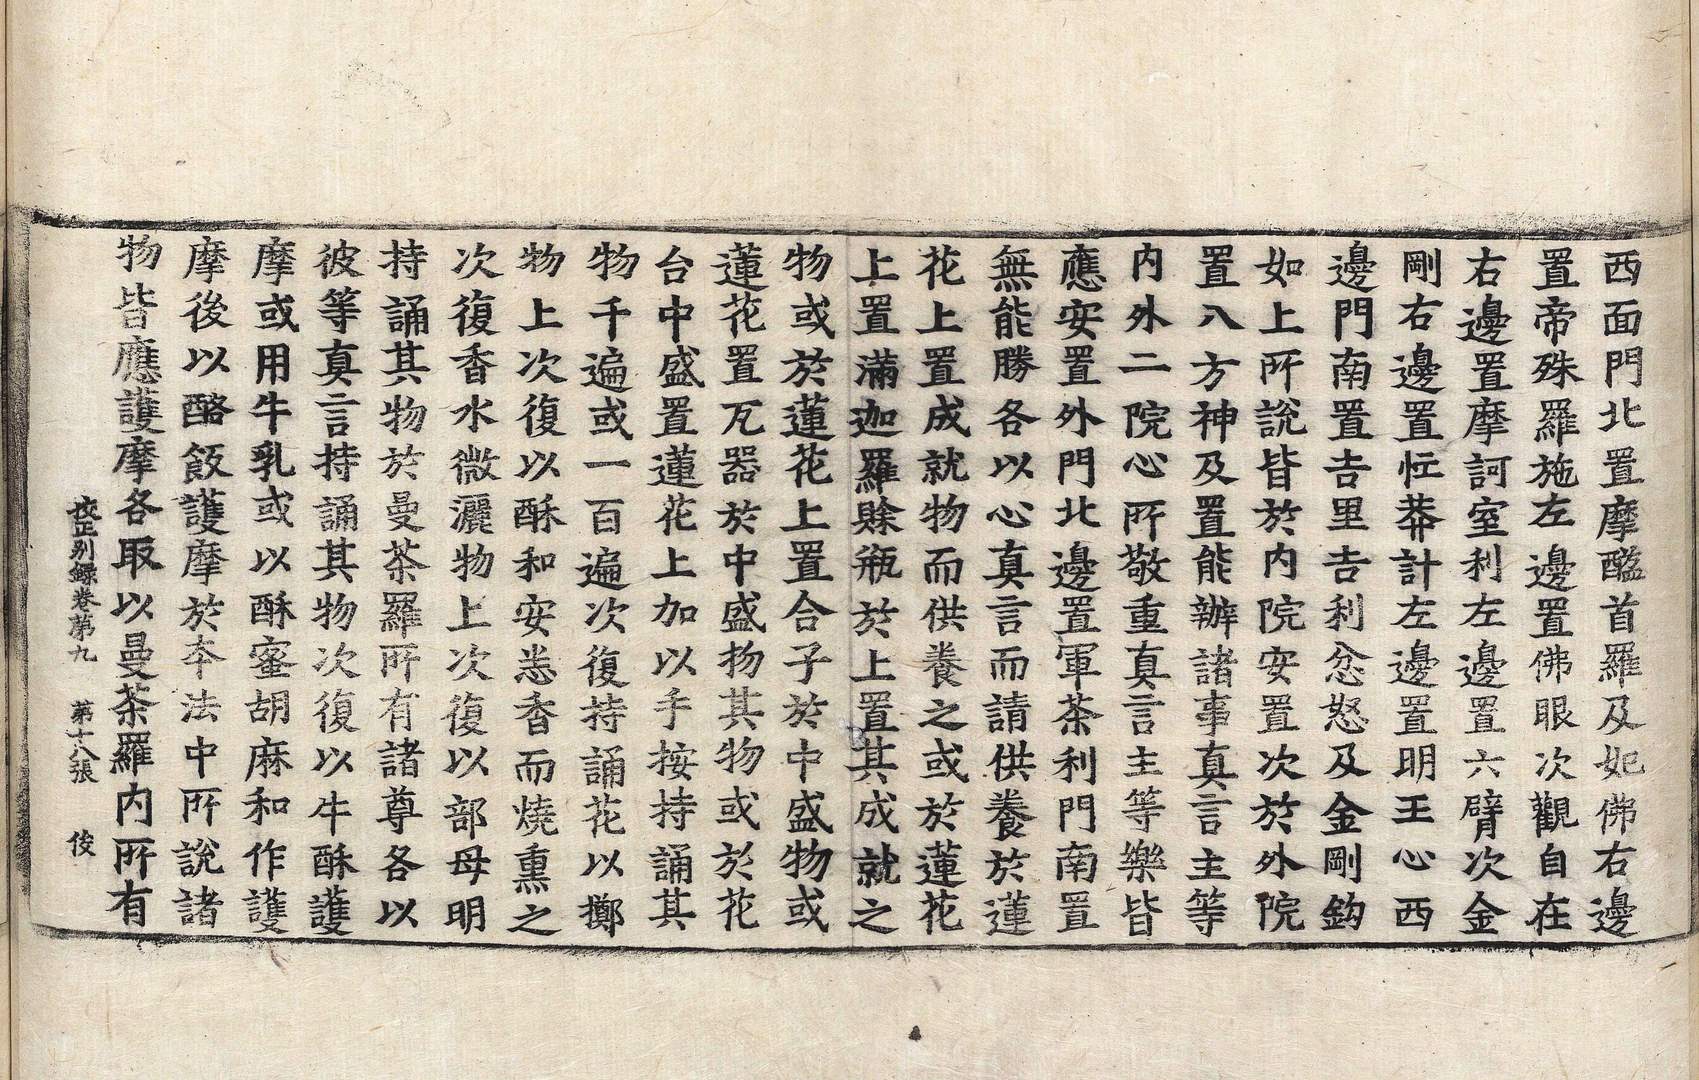 西面門北置摩醯首羅及妃佛右邊
置帝殊羅施左邊置佛眼次觀自在
右邊置摩訶室利左邊置六臂次金
剛右邊置忙莽計左邊置明王心西
邊門南置吉里吉利忿怒及金剛鈎
如上所說皆於內院安置次於外院
置八方神及置能辦諸事真言主等
內外二院心所敬重真言主等樂皆
應安置外門北邊置軍荼利門南置
無能勝各以心真言而請供養於蓮
花上置成就物而供養之或於蓮花
上置滿迦羅賖瓶於上置其成就之
物或於蓮花上置合子於中盛物或
蓮花置瓦器於中盛物其物或於花
台中盛置蓮花上加以手按持誦其
物千遍或一百遍次復持誦花以擲
物上次復以酥和安悉香而燒熏之
次復香水微灑物上次復以部母明
持誦其物於曼荼羅所有諸尊各以
彼等真言持誦其物次復以牛酥護
摩或用牛乳或以酥蜜胡麻和作護
摩後以酪飯護摩於本法中所說諸
物皆應護摩各取以曼荼羅內所有
校正別録卷第九 第十八張 俊